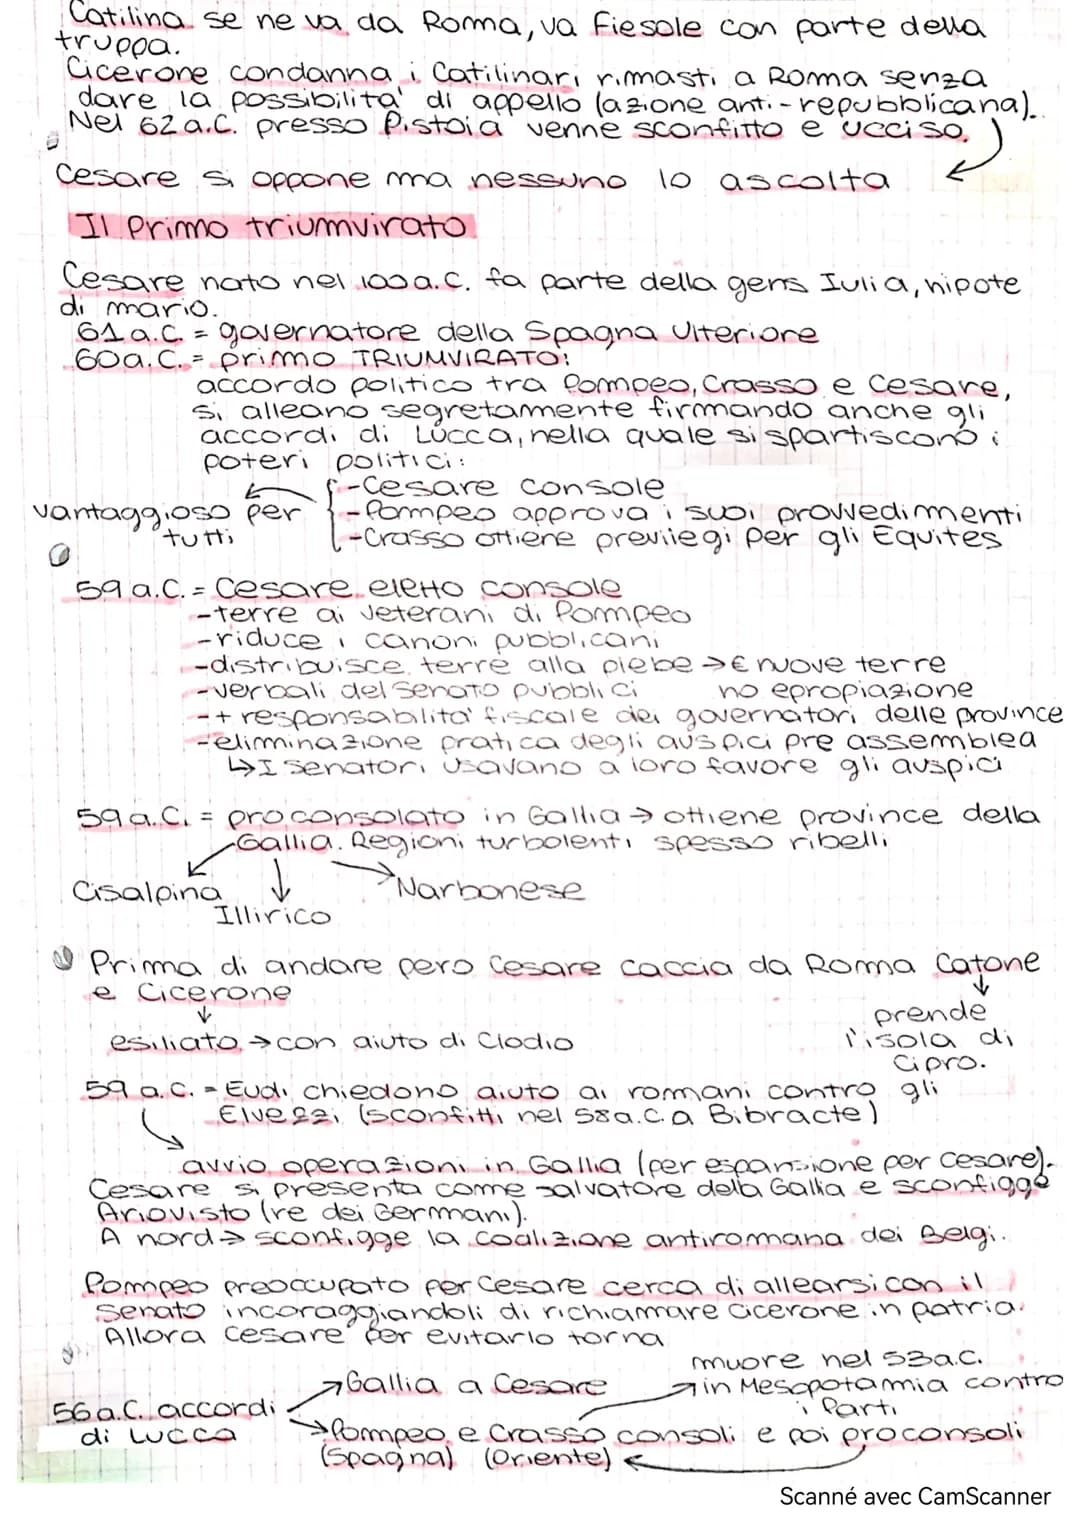 Catilina se ne va da Roma, va Fiesole con parte della
truppa.
Cicerone condanna i Catilinari rimasti a Roma senza
dare la possibilità di appello (azione anti-repubblicana).
Nel 62 a.C. presso Pistoia venne sconfitto e ucciso.
Cesare si oppone ma nessuno lo ascolta
Il Primo triumvirato
Cesare nato nel 100 a.C. fa parte della gens Iulia, nipote
di mario.
61 a.C. = governatore della Spagna Ulteriore
60 a.C. = primo TRIUMVIRATO:
accordo politico tra Pompeo, Crasso e Cesare,
si alleano segretamente firmando anche gli
accordi di Lucca, nella quale si spartiscono i
poteri politici:
-Cesare console
vantaggioso per
-Pompeo approva i suoi provvedimenti
tutti
-Crasso ottiene previlegi per gli Equites
59 a.C. = Cesare eletto console
-terre ai veterani di Pompeo
-riduce i canoni pubblicani
-distribuisce terre alla plebe → € nuove terre
-verbali del Senato pubblici
no epropiazione
-+ responsabilità fiscale dei governatori delle province
-eliminazione pratica degli auspici pre assemblea
↳ I senatori usavano a loro favore gli auspici
59 a.C. = proconsolato in Gallia → ottiene province della
Gallia. Regioni turbolenti spesso ribelli
Cisalpina
Narbonese
Illirico
Prima di andare pero Cesare caccia da Roma Catone
e Cicerone
prende
esiliato → con aiuto di Clodio
l'isola di
Cipro.
59 a.C. = Eudi chiedono aiuto ai romani contro gli
Elvezzi (sconfitti nel 58 a.C. a Bibracte)
avvio operazioni in Gallia (per espansione per cesare).
Cesare si presenta come salvatore della Gallia e sconfigge
Ariovisto (re dei Germani).
A nord → sconfigge la coalizione antiromana dei Belgi.
Pompeo preoccupato per Cesare cerca di allearsi con il
Senato incoraggiandoli di richiamare Cicerone in patria.
Allora Cesare per evitarlo torna
muore nel 53 a.C.
Gallia a Cesare
in Mesopotamia contro
i Parti
56 a.C. accordi
di Lucca
Pompeo e Crasso consoli e poi proconsoli
(Spagna) (Oriente)
Scanné avec CamScanner